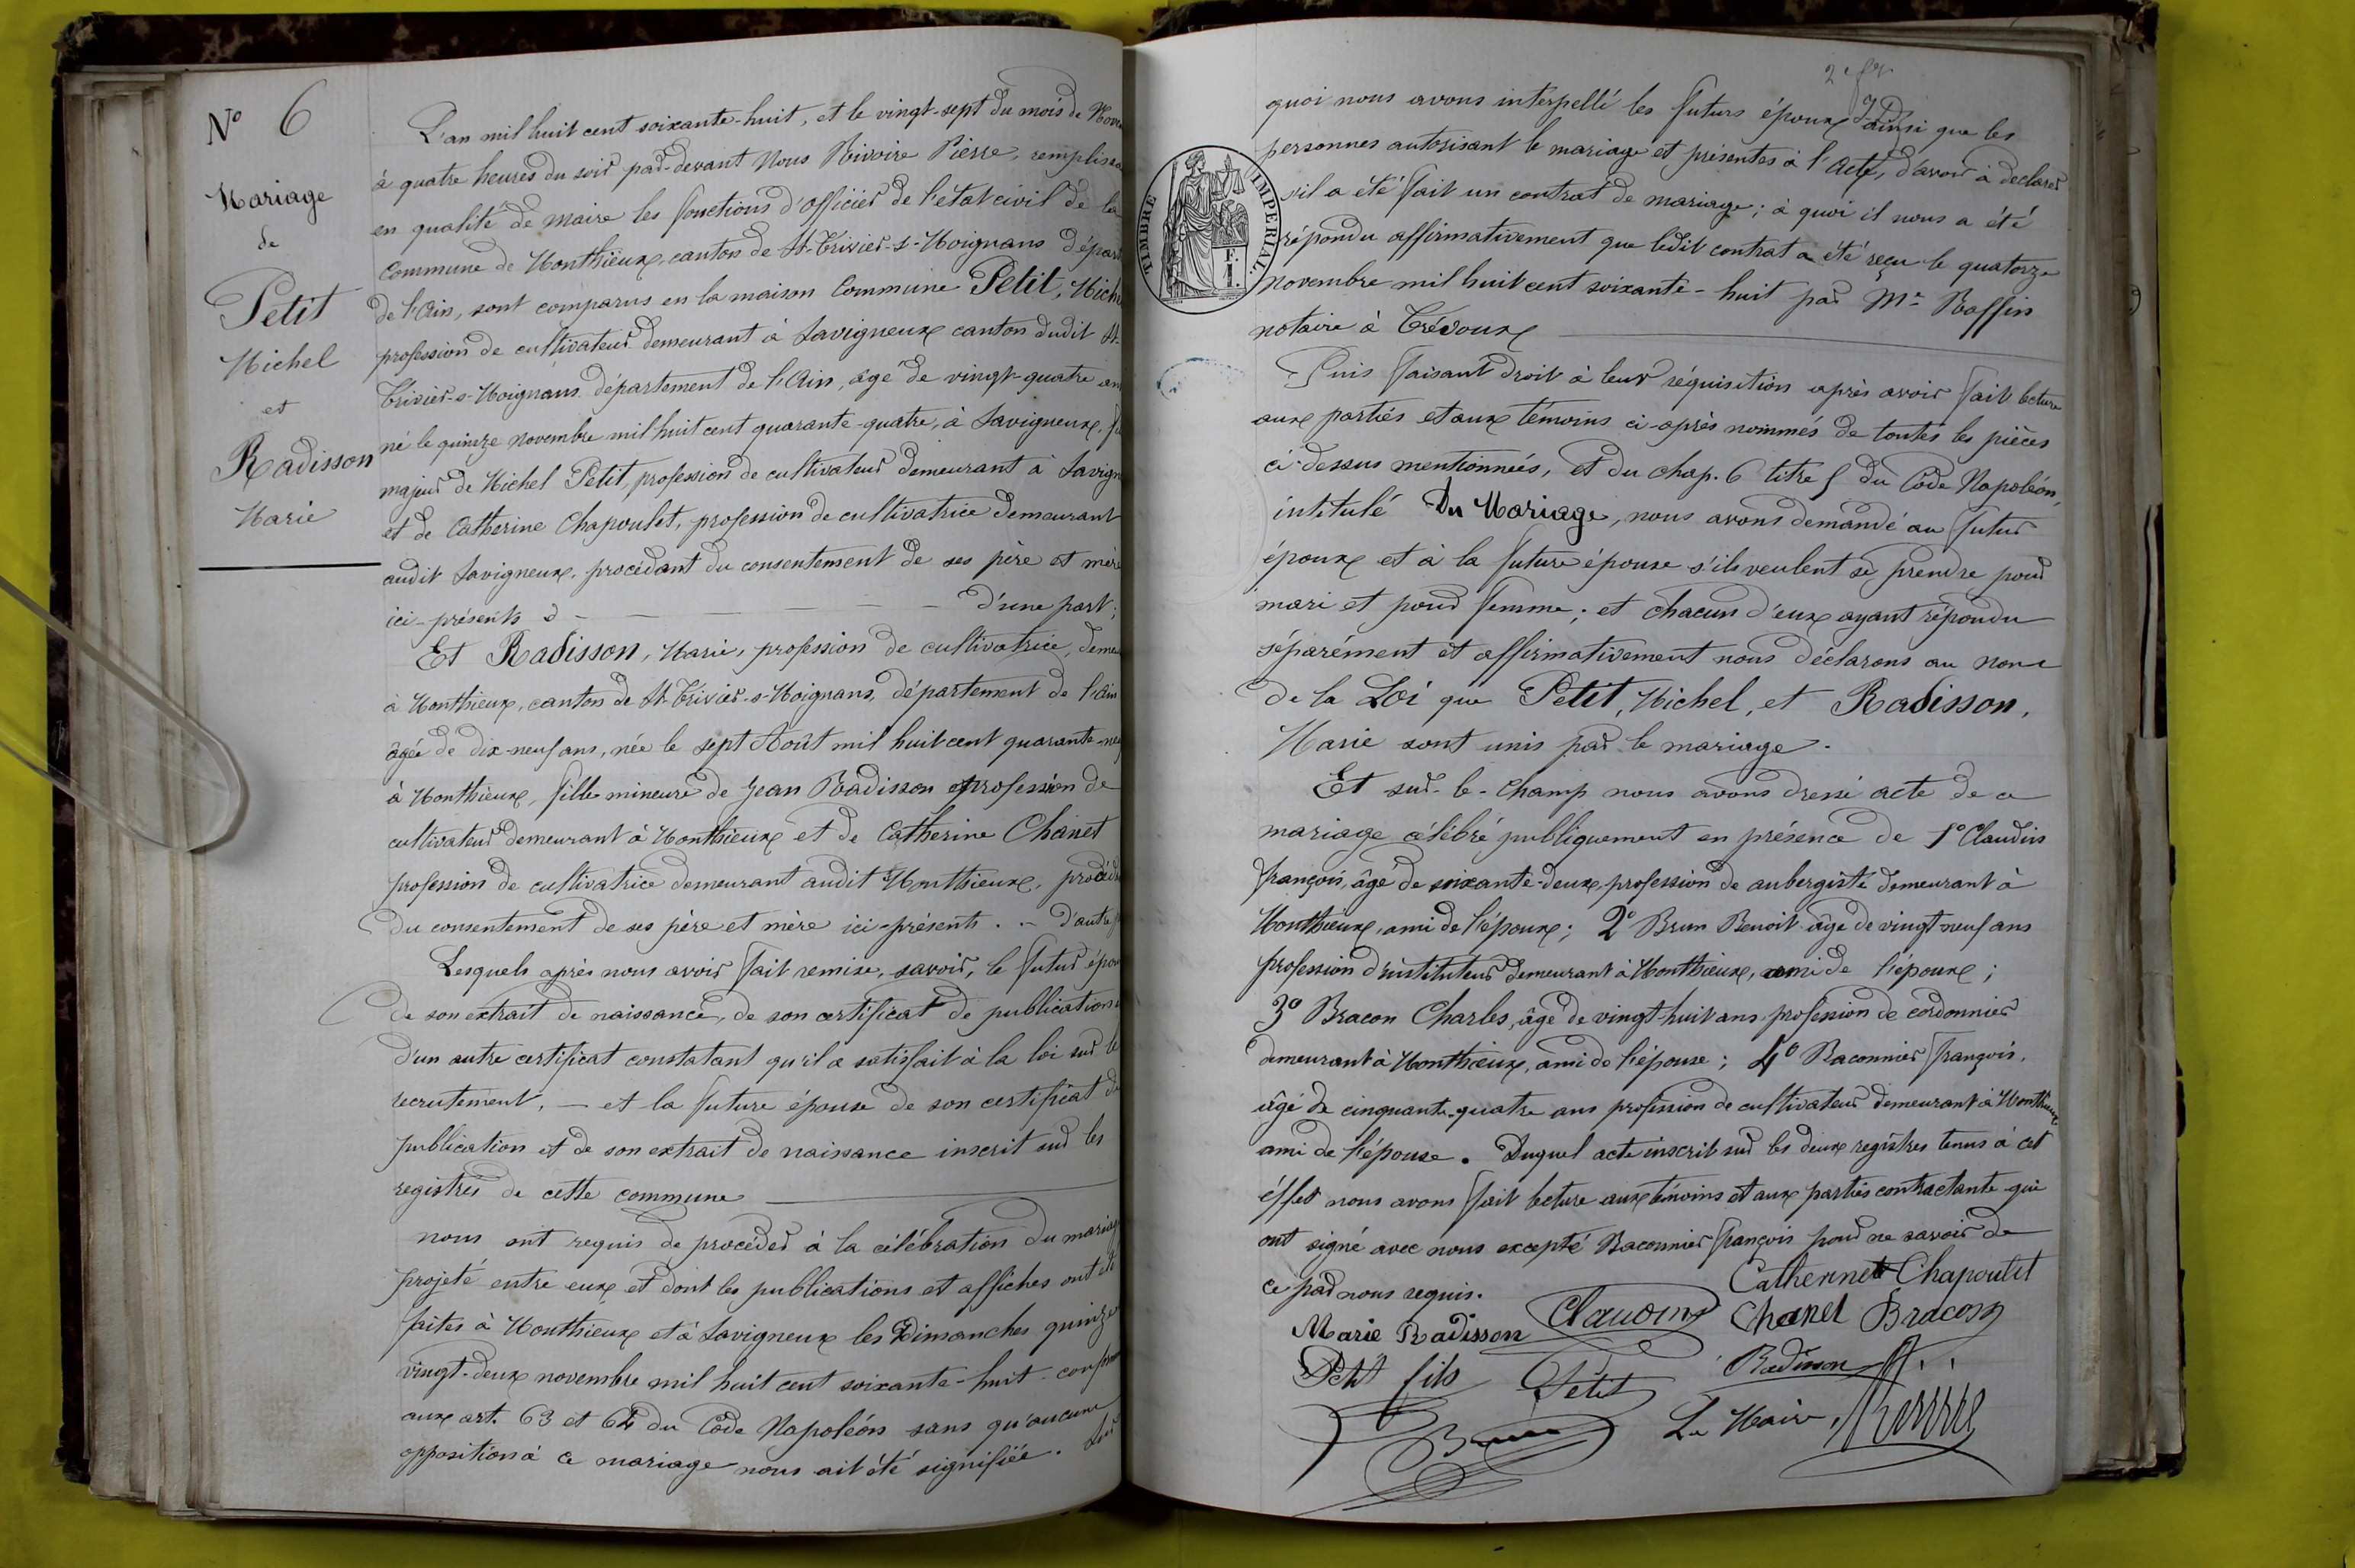 N° 6
Mariage
de
Petit
Michel
et
Radisson
Marie
L'an mil huit cent soixante-huit, et le vingt-sept du mois de Nove
à quatre heures du soir par-devant Nous Rivoire Pierre, remplissa
en qualité de maire les fonctions d'officier de l'état civil de la
Commune de Monthieux, canton de St-Trivier-s-Moignans Dépar
de l'Ain, sont comparus en la maison Commune Petit, Mich
profession de cultivateur demeurant à Savigneux canton dudit St-
Trivier-s-Moignans département de l'Ain, âgé de vingt-quatre an
né le quinze novembre mil huit cent quarante-quatre, à Savigneux, fi
majeur de Michel Petit, profession de cultivateur demeurant à Savign
et de Catherine Chapoulet, profession de cultivatrice demeurant
audit Savigneux, procédant du consentement de ses père et mère
ici-présents d'une part;
Et Radisson, Marie, profession de cultivatrice, deme
à Monthieux, canton de St-Trivier-s-Moignans, département de l'Ain
âgée de dix-neuf ans, née le sept Août mil huit cent quarante-neu
à Monthieux, fille mineure de Jean Radisson profession de
cultivateur demeurant à Monthieux et de Catherine Chanet
profession de cultivatrice demeurant audit Monthieux, procéda
du consentement de ses père et mère ici-présents. - d'autre p
Lesquels après nous avoir fait remise, savoir, le futur épou
de son extrait de naissance, de son certificat de publication
d'un autre certificat constatant qu'il a satisfait à la loi sur le
recrutement, - et la future épouse de son certificat de
publication et de son extrait de naissance inscrit sur les
registres de cette commune
nous ont requis de procéder à la célébration du mariag
projeté entre eux et dont les publications et affiches ont été
faites à Monthieux et à Savigneux les Dimanches quinze
vingt-deux novembre mil huit cent soixante-huit conform
aux art. 63 et 64 du Code Napoléon sans qu'aucune
opposition à ce mariage nous ait été signifiée. Sur
quoi nous avons interpellé les futurs époux ainsi que les
personnes autorisant le mariage et présentes à l'Acte, d'avoir à déclarer
s'il a été fait un contrat de mariage; à quoi il nous a été
répondu affirmativement que ledit contrat a été reçu le quatorze
novembre mil huit cent soixante-huit par Me Raffin
notaire à Trévoux
TIMBRE IMPERIAL
F.
1.
Puis faisant droit à leur réquisition après avoir fait lecture
aux parties et aux témoins ci-après nommés de toutes les pièces
ci-dessus mentionnées, et du chap. 6 titre 5 du Code Napoléon,
intitulé Du Mariage, nous avons demandé au futur
époux et à la future épouse s'ils veulent se prendre pour
mari et pour femme; et chacun d'eux ayant répondu
séparément et affirmativement nous déclarons au nom
de la Loi que Petit, Michel, et Radisson,
Marie sont unis par le mariage.
Et sur-le-champ nous avons dressé acte de ce
mariage célébré publiquement en présence de 1° Claudin
françois, âgé de soixante-deux, profession de aubergiste demeurant à
Monthieux, ami de l'époux; 2° Brun Benoit âgé de vingt-neuf ans
profession d'instituteur demeurant à Monthieux, ami de l'époux;
3° Bracon Charles, âgé de vingt-huit ans, profession de cordonnier
demeurant à Monthieux, ami de l'épouse; 4° Raconnier françois,
âgé de cinquante-quatre ans profession de cultivateur demeurant à Monthieux
ami de l'épouse. Duquel acte inscrit sur les deux registres tenus à cet
éffet nous avons fait lecture aux témoins et aux parties contractante qui
ont signé avec nous excepté Raconnier françois pour ne savoir de
ce par nous requis.
Catherinet Chapoulet
Marie Radisson Claudin Chanel Bracon
Petit fils Petit Radisson
Brun Le Maire, Rivoire